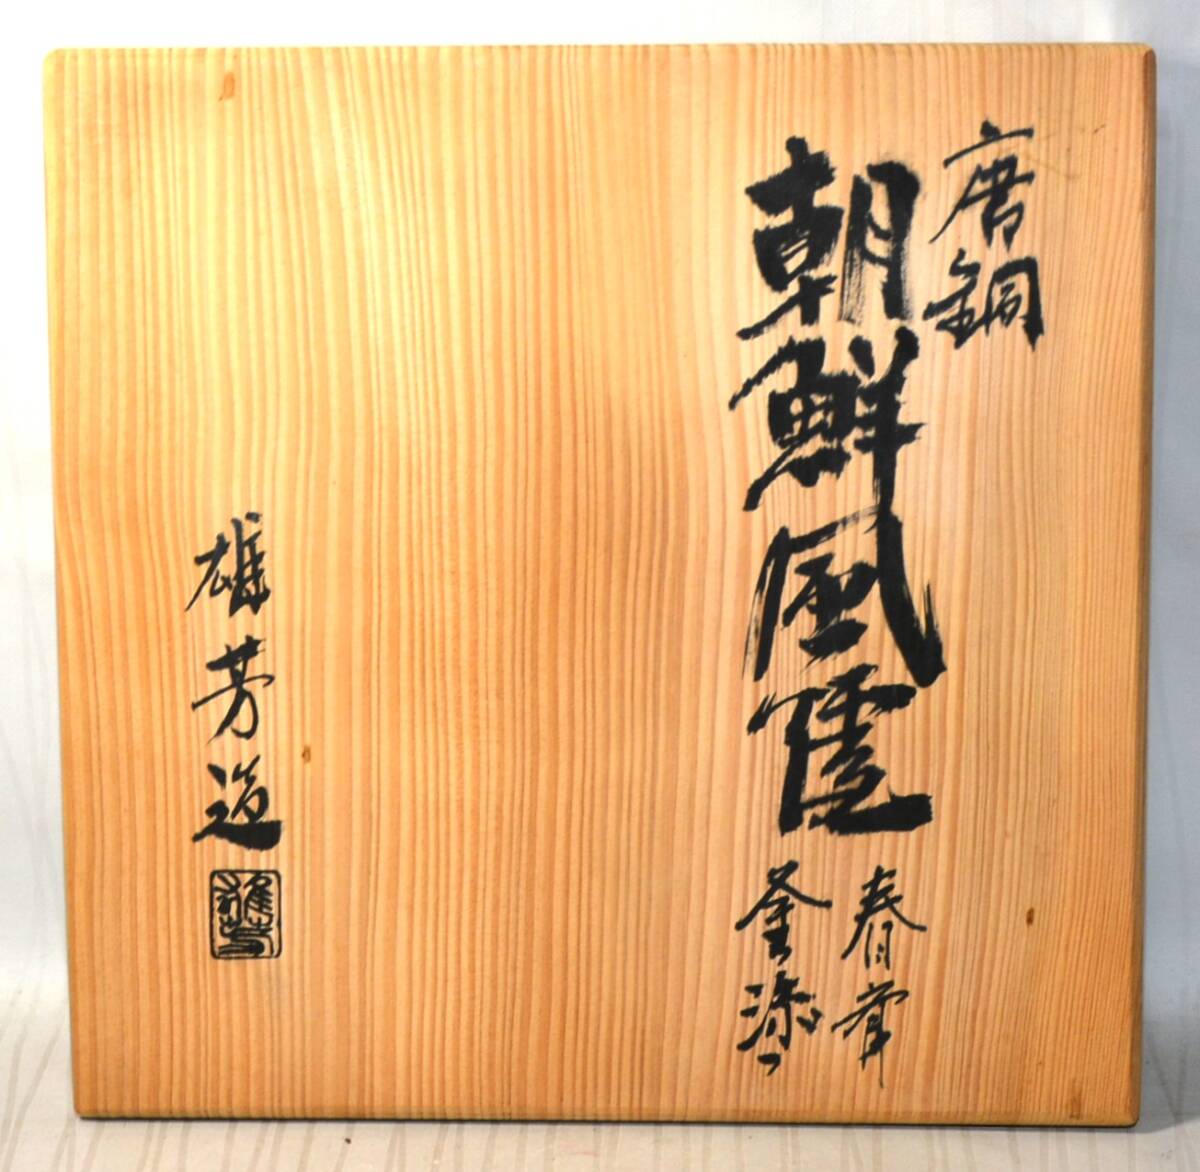 唐銅
朝鮮風爐
春
釜添
雄芳造
雄芳